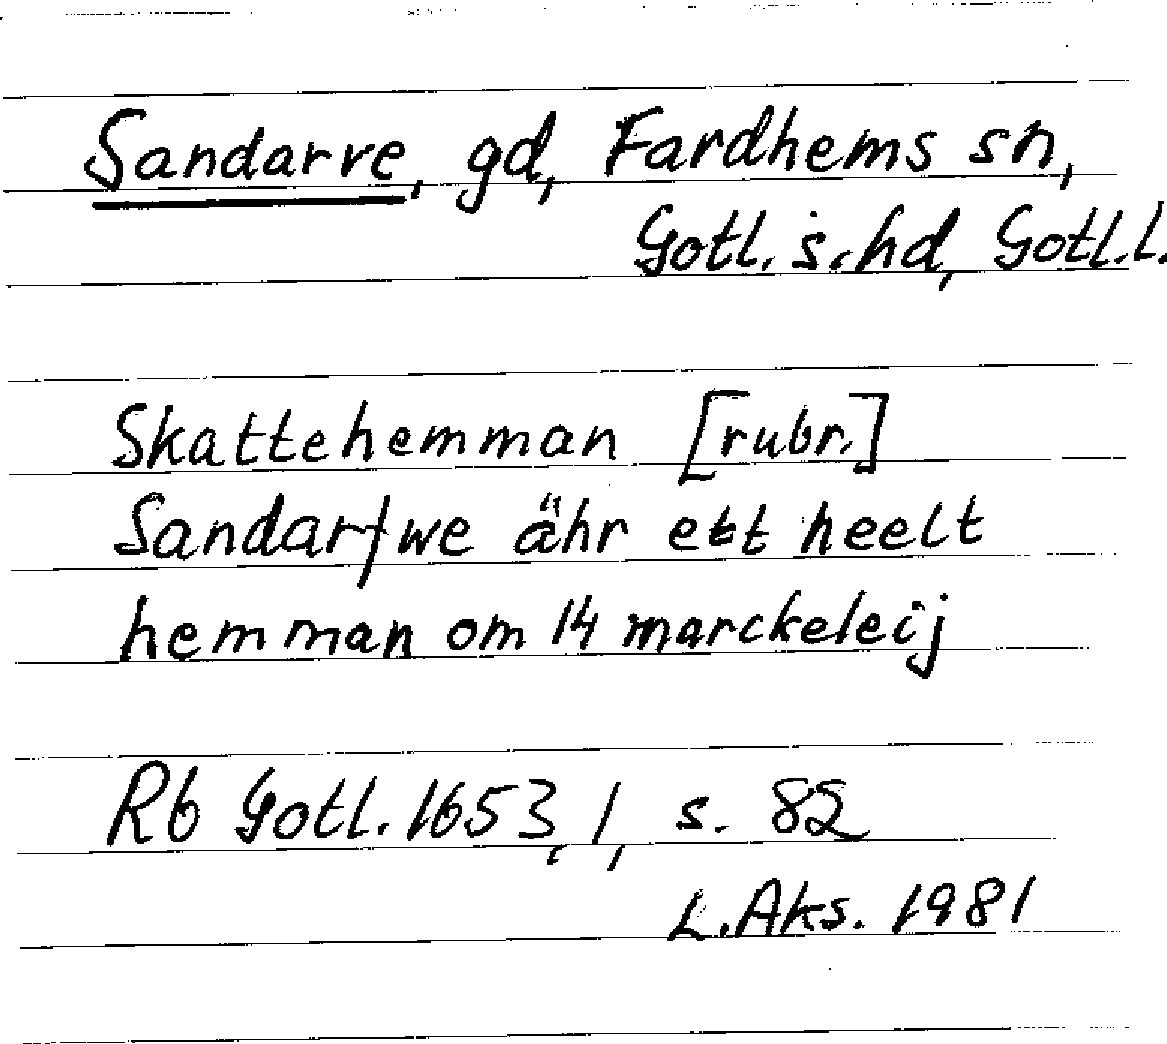 Sandarve, gd, Fardhems sn,
Gotl. s. hd, Gotl. l.
Skattehemman [rubr.]
Sandarfwe ähr ett heelt
hemman om 14 marckeleij
Rb Gotl. 1653, 1, s. 82
L. Aks. 1981